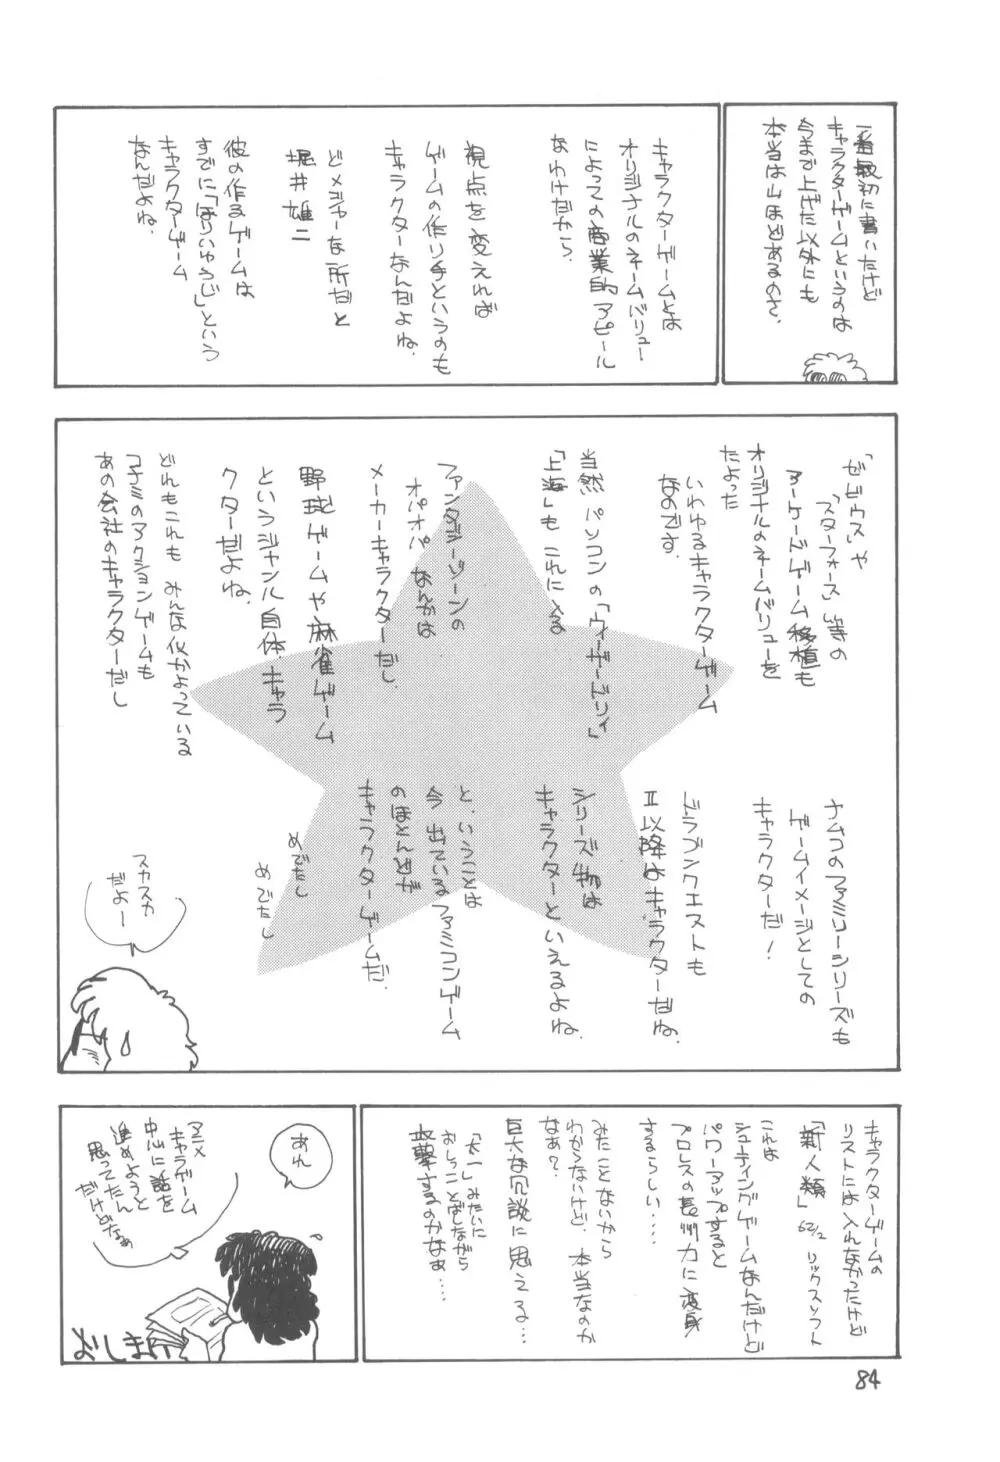 一番最初に書いたけど
キャラクターゲームというのは
今まで上げた以外にも
本当は山ほどあるのさ。
キャラクターゲームとは
オリジナルのネームバリュー
によっての商業的アピール
なわけだから、
視点を変えれば
ゲームの作り手というのも
キャラクターなんだよね。
どメジャーな所だと
堀井雄二
彼の作るゲームは
すでに「ほりいゆうじ」という
キャラクターゲーム
なんだよね。
「ゼビウス」や
「スターフォース」等の
アーケードゲーム移植も
オリジナルのネームバリューを
たよった
いわゆるキャラクターゲーム
なのです。
当然パソコンの「ウィザードリィ」
「上海」もこれに入る
ファンタジーゾーンの
オパオパなんかは
メーカーキャラクターだし、
野球ゲームや麻雀ゲーム
というジャンル自体、キャラ
クターだよね。
どれもこれもみんな似かよっている
コナミのアクションゲームも
あの会社のキャラクターだし
ナムコのファミリーシリーズも
ゲームイメージとしての
キャラクターだ!
ドラゴンクエストも
II以降はキャラクターだね。
シリーズ物は
キャラクターといえるよね。
と、いうことは
今出ているファミコンゲーム
のほとんどが
キャラクターゲームだ。
めでたし
めでたし
スカスカ
だよー
キャラクターゲームの
リストには入れなかったけど
「新人類」62/2 リックスソフト
これは
シューティングゲームなんだけど
パワーアップすると
プロレスの長州力に変身
するらしい‥‥
みたことないから
わからないけど、本当なのか
なぁ?
巨大な冗談に思える…
「太一」みたいに
おしっことばしながら
攻撃するのかなぁ…
あれ
アニメ
キャラゲーム
中心に話を
進めようと
思ってたん
だけどなぁ
おしまい
84